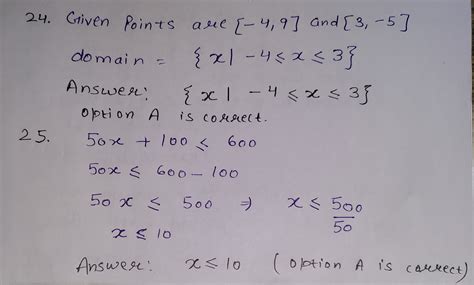 24. Given Points are [-4,9] and [3,-5]
domain = {x| -4 ≤ x ≤ 3}
Answer: {x| -4 ≤ x ≤ 3}
Option A is correct.
25. 50x + 100 ≤ 600
50x ≤ 600 - 100
50x ≤ 500 ⇒ x ≤ 500/50
x ≤ 10
Answer: x ≤ 10 (Option A is correct)